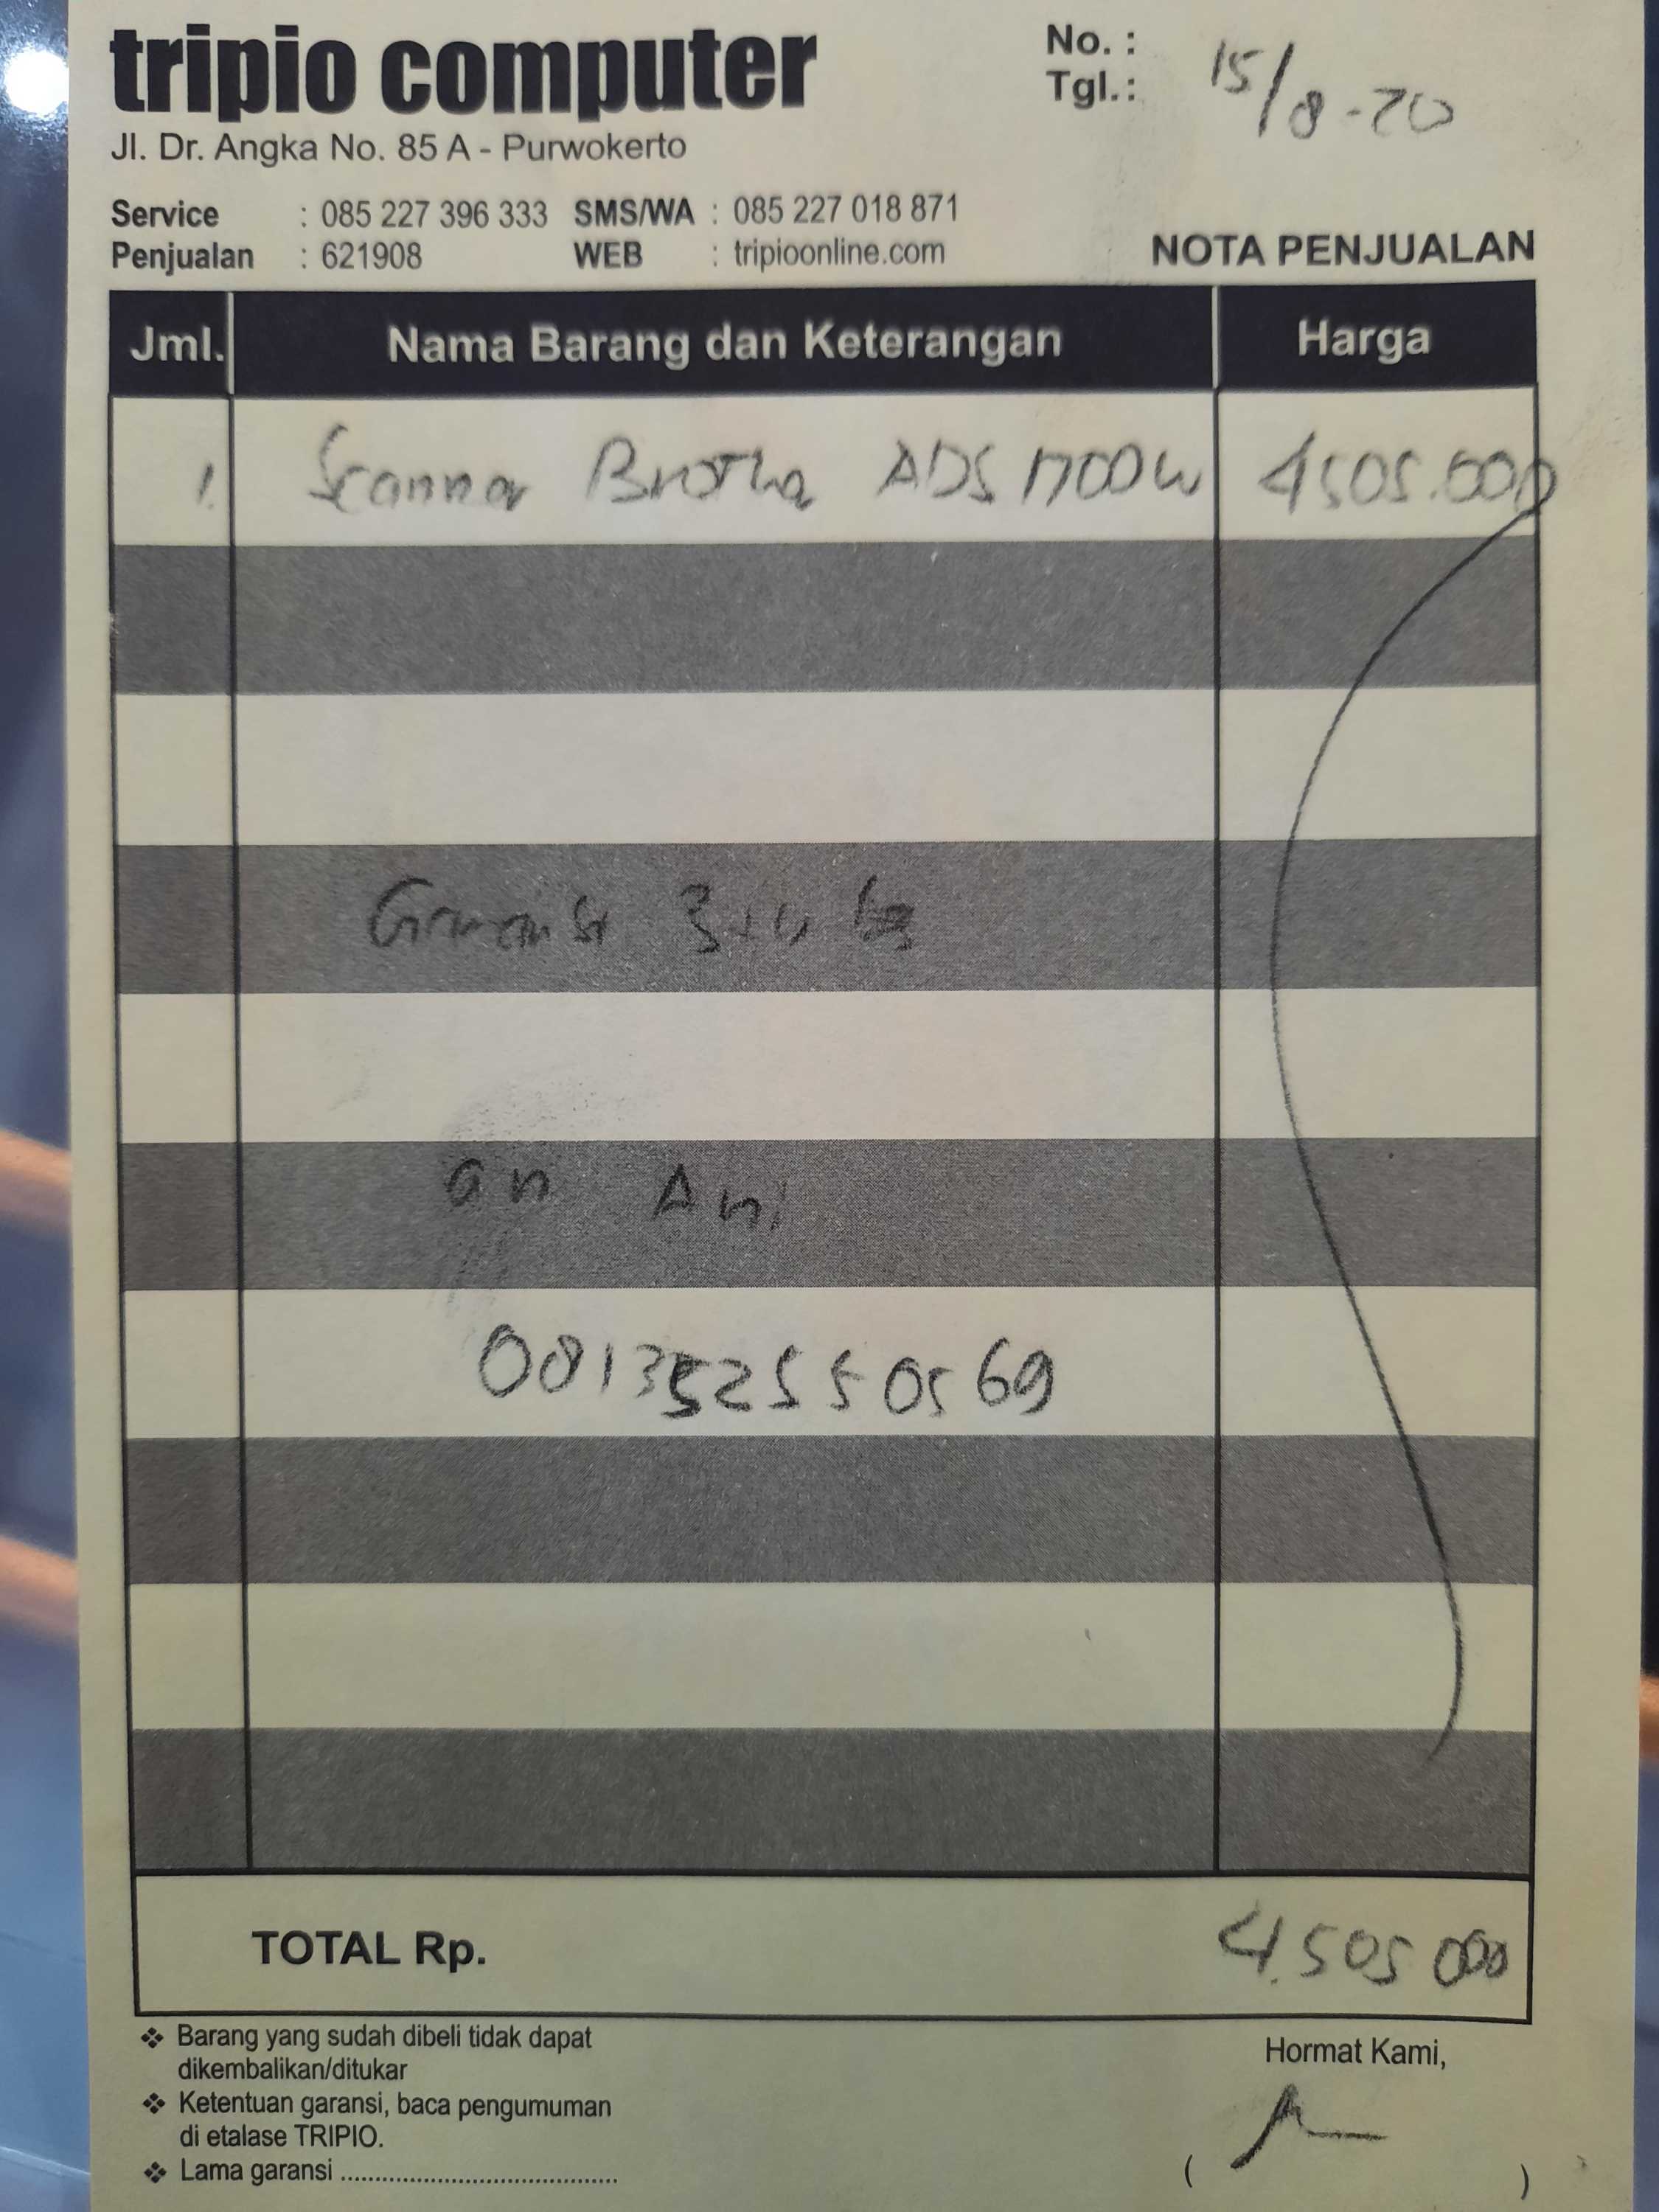 tripio computer
Jl. Dr. Angka No. 85 A - Purwokerto
No. :
Tgl. : 15/8-20
Service : 085 227 396 333 SMS/WA : 085 227 018 871
Penjualan : 621908 WEB : tripioonline.com
NOTA PENJUALAN
Jml. Nama Barang dan Keterangan Harga
1. Scanner Brother ADS 1700W 4505.000
an Ani
TOTAL Rp. 4.505 000
❖ Barang yang sudah dibeli tidak dapat
dikembalikan/ditukar
❖ Ketentuan garansi, baca pengumuman
di etalase TRIPIO.
❖ Lama garansi ........................................
Hormat Kami,
( )